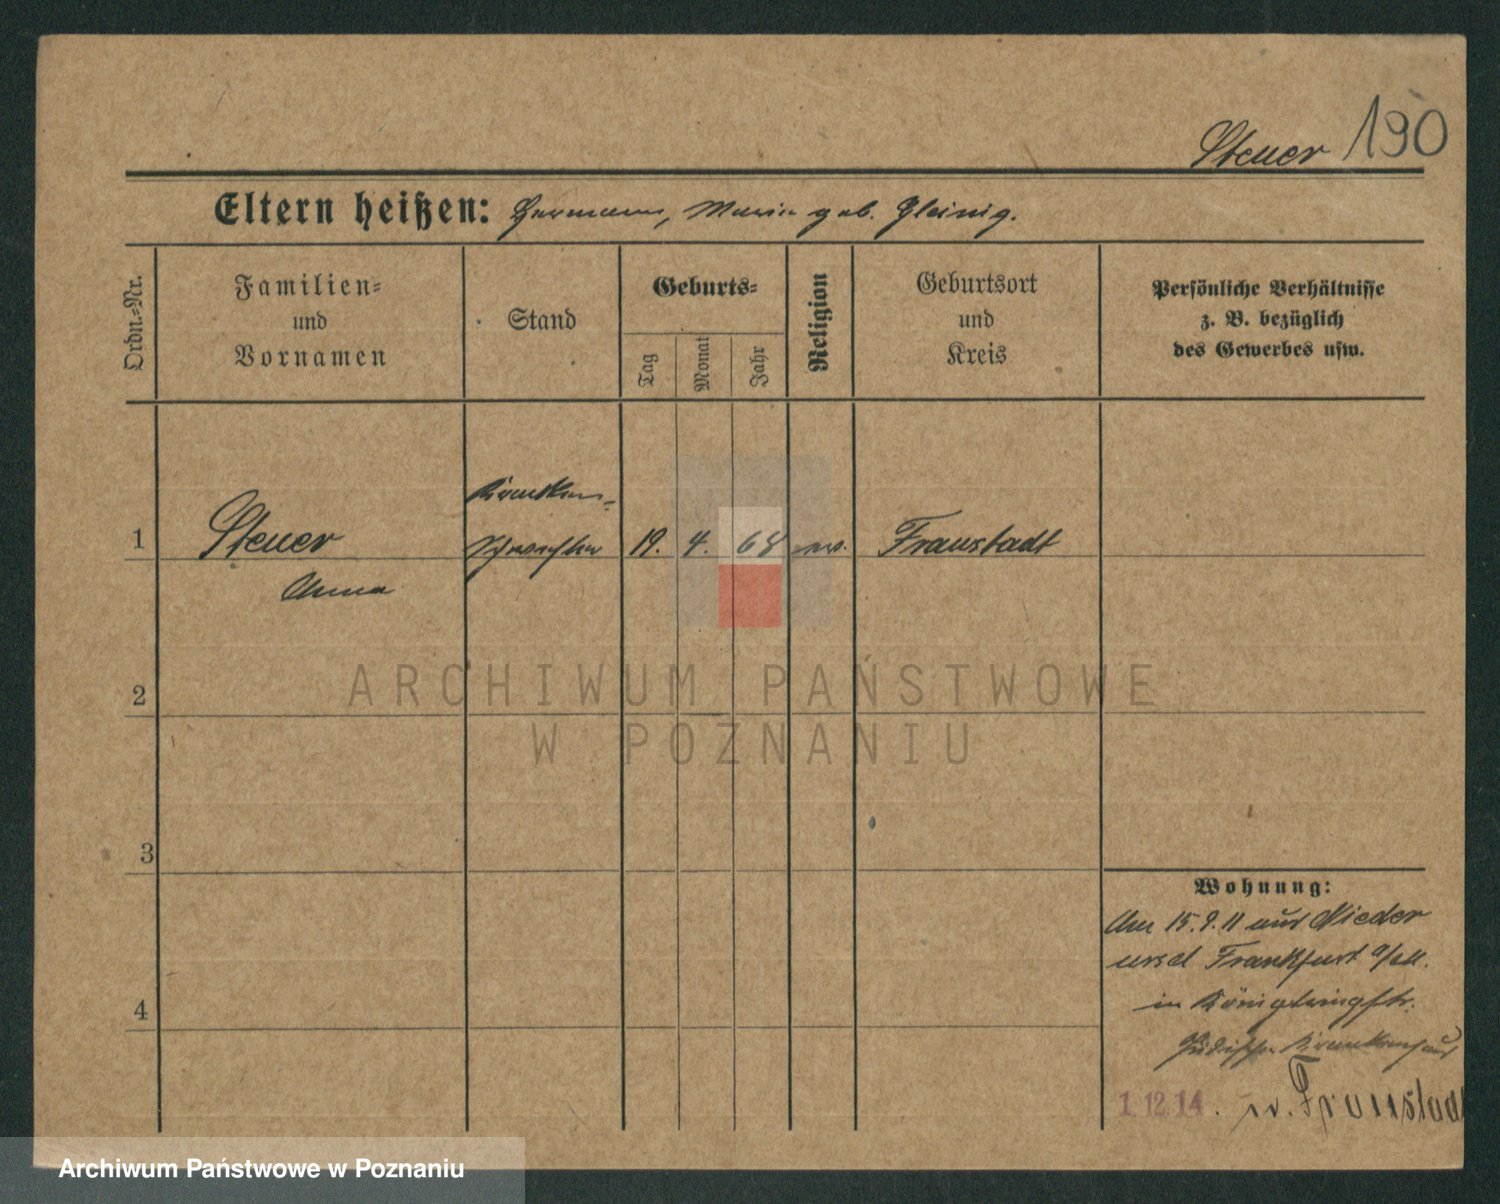 Steuer 190
Eltern heißen: Hermann, Maria geb. Gleinig.
Ordn.-Nr.
Familien-
und
Vornamen
Stand
Geburts-
Tag
Monat
Jahr
Religion
Geburtsort
und
Kreis
Persönliche Verhältnisse
z. B. bezüglich
des Gewerbes usw.
Kranken-
1 Steuer schwester 19. 4. 68 ev. Fraustadt
Anna
2
3
4
Wohnung:
Am 15.9.11 aus Nieder
ursel Frankfurt a/M.
in Königsbergstr.
Jüdische Krankenhaus
1.12.14. n. Fraustadt
ARCHIWUM PAŃSTWOWE
W POZNANIU
Archiwum Państwowe w Poznaniu